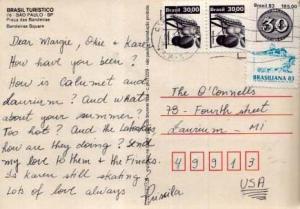 BRASIL TURÍSTICO
76 - SÃO PAULO - SP
Praça das Bandeiras
Bandeiras Square
Dear Margie, Okie & Karen
How have you been?
How is Calumet and
Laurium? And what
about your summer?
Too hot? And the
how are they doing? Send
my love to them & the
Is Karen still skating
Lots of love always
Priscila
The O'Connells
78 - Fourth street
Laurium - MI
49913
USA
Brasil
30,00
Brasil
30,00
Brasil 83
185,00
30
BRASILIANA 83